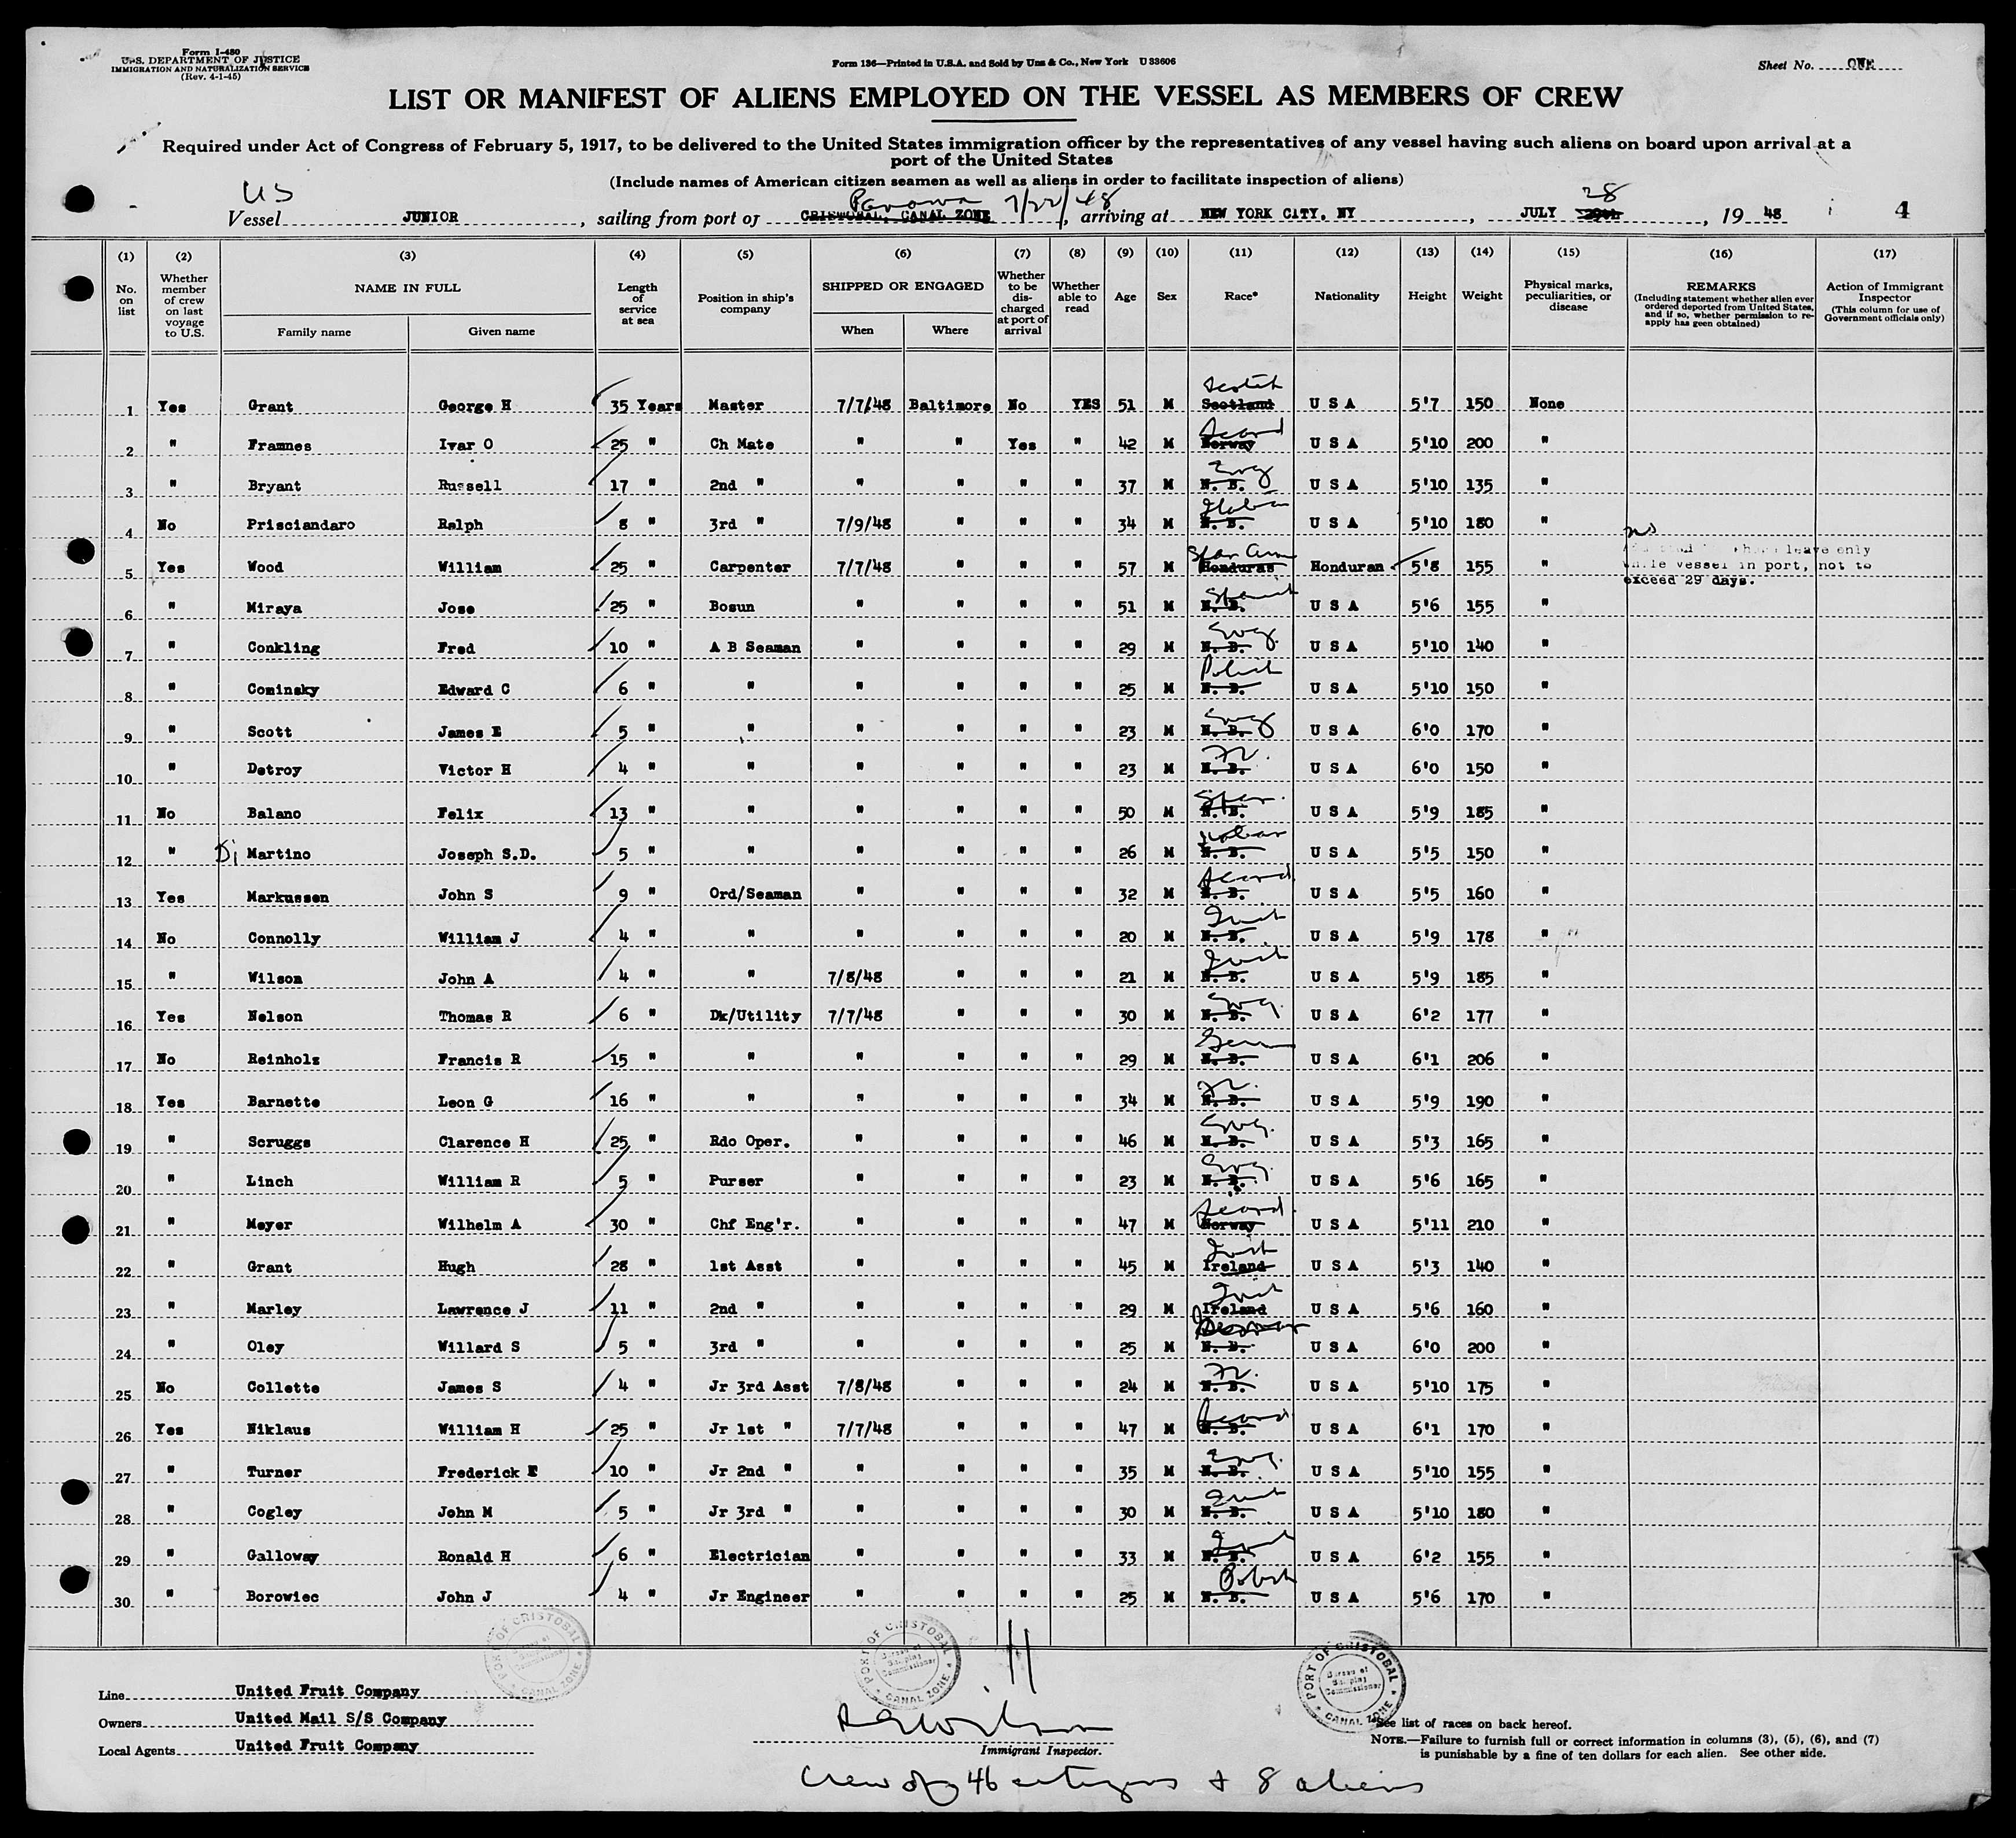 Form I-480
U.S. DEPARTMENT OF JUSTICE
IMMIGRATION AND NATURALIZATION SERVICE
(Rev. 4-1-45)
Form 136—Printed in U.S.A. and Sold by Unz & Co., New York U 33606
Sheet No. ONE
LIST OR MANIFEST OF ALIENS EMPLOYED ON THE VESSEL AS MEMBERS OF CREW
Required under Act of Congress of February 5, 1917, to be delivered to the United States immigration officer by the representatives of any vessel having such aliens on board upon arrival at a
port of the United States
(Include names of American citizen seamen as well as aliens in order to facilitate inspection of aliens)
US Panama 7/22/48 28
Vessel JUNIOR, sailing from port of CRISTOBAL, CANAL ZONE, arriving at NEW YORK CITY, NY, JULY 29th, 19 48 4
(1) (2) (3) (4) (5) (6) (7) (8) (9) (10) (11) (12) (13) (14) (15) (16) (17)
No. on list
Whether member of crew on last voyage to U.S.
NAME IN FULL
Family name
Given name
Length of service at sea
Position in ship's company
SHIPPED OR ENGAGED
When
Where
Whether to be discharged at port of arrival
Whether able to read
Age
Sex
Race*
Nationality
Height
Weight
Physical marks, peculiarities, or disease
REMARKS
(Including statement whether alien ever ordered deported from United States, and if so, whether permission to re-apply has geen obtained)
Action of Immigrant Inspector
(This column for use of Government officials only)
1 Yes Grant George H 35 Years Master 7/7/48 Baltimore No YES 51 M Scotland Scotch U S A 5'7 150 None
2 " Framnes Ivar O 25 " Ch Mate " " Yes " 42 M Norway Scand U S A 5'10 200 "
3 " Bryant Russell 17 " 2nd " " " " " 37 M N. B. Eng U S A 5'10 135 "
4 No Prisciandaro Ralph 8 " 3rd " 7/9/48 " " " 34 M N. B. Italian U S A 5'10 180 "
5 Yes Wood William 25 " Carpenter 7/7/48 " " " 57 M Honduras Span Am Honduran 5'8 155 " leave only
while vessel in port, not to
exceed 29 days.
6 " Miraya Jose 25 " Bosun " " " " 51 M N. B. Spanish U S A 5'6 155 "
7 " Conkling Fred 10 " A B Seaman " " " " 29 M N. B. Eng. U S A 5'10 140 "
8 " Cominsky Edward C 6 " " " " " " 25 M N. B. Polish U S A 5'10 150 "
9 " Scott James E 5 " " " " " " 23 M N. B. Eng U S A 6'0 170 "
10 " Detroy Victor H 4 " " " " " " 23 M N. B. Fr. U S A 6'0 150 "
11 No Balano Felix 13 " " " " " " 50 M N. B. Span. U S A 5'9 185 "
12 " Di Martino Joseph S.D. 5 " " " " " " 26 M N. B. Italian U S A 5'5 150 "
13 Yes Markussen John S 9 " Ord/Seaman " " " " 32 M N. B. Scand U S A 5'5 160 "
14 No Connolly William J 4 " " " " " " 20 M N. B. Irish U S A 5'9 178 "
15 " Wilson John A 4 " " 7/8/48 " " " 21 M N. B. Irish U S A 5'9 185 "
16 Yes Nelson Thomas R 6 " Dk/Utility 7/7/48 " " " 30 M N. B. Eng. U S A 6'2 177 "
17 No Reinholz Francis R 15 " " " " " " 29 M N. B. Germ U S A 6'1 206 "
18 Yes Barnette Leon G 16 " " " " " " 34 M N. B. Fr. U S A 5'9 190 "
19 " Scruggs Clarence H 25 " Rdo Oper. " " " " 46 M N. B. Eng. U S A 5'3 165 "
20 " Linch William R 5 " Purser " " " " 23 M N. B. Eng. U S A 5'6 165 "
21 " Meyer Wilhelm A 30 " Chf Eng'r. " " " " 47 M Norway Scand. U S A 5'11 210 "
22 " Grant Hugh 28 " 1st Asst " " " " 45 M Ireland Irish U S A 5'3 140 "
23 " Marley Lawrence J 11 " 2nd " " " " " 29 M Ireland Irish U S A 5'6 160 "
24 " Oley Willard S 5 " 3rd " " " " " 25 M N. B. U S A 6'0 200 "
25 No Collette James S 4 " Jr 3rd Asst 7/8/48 " " " 24 M N. B. Fr. U S A 5'10 175 "
26 Yes Niklaus William H 25 " Jr 1st " 7/7/48 " " " 47 M N. B. Scand U S A 6'1 170 "
27 " Turner Frederick E 10 " Jr 2nd " " " " " 35 M N. B. Eng. U S A 5'10 155 "
28 " Cogley John M 5 " Jr 3rd " " " " " 30 M N. B. Irish U S A 5'10 180 "
29 " Galloway Ronald H 6 " Electrician " " " " 33 M N. B. Irish U S A 6'2 155 "
30 " Borowiec John J 4 " Jr Engineer " " " " 25 M N. B. Polish U S A 5'6 170 "
PORT OF CRISTOBAL
Bureau of Shipping Commissioner
CANAL ZONE
PORT OF CRISTOBAL
Bureau of Shipping Commissioner
CANAL ZONE
PORT OF CRISTOBAL
Bureau of Shipping Commissioner
CANAL ZONE
Line United Fruit Company
Owners United Mail S/S Company
Local Agents United Fruit Company
Immigrant Inspector.
*See list of races on back hereof.
NOTE.—Failure to furnish full or correct information in columns (3), (5), (6), and (7)
is punishable by a fine of ten dollars for each alien. See other side.
Crew of 46 citizens + 8 aliens